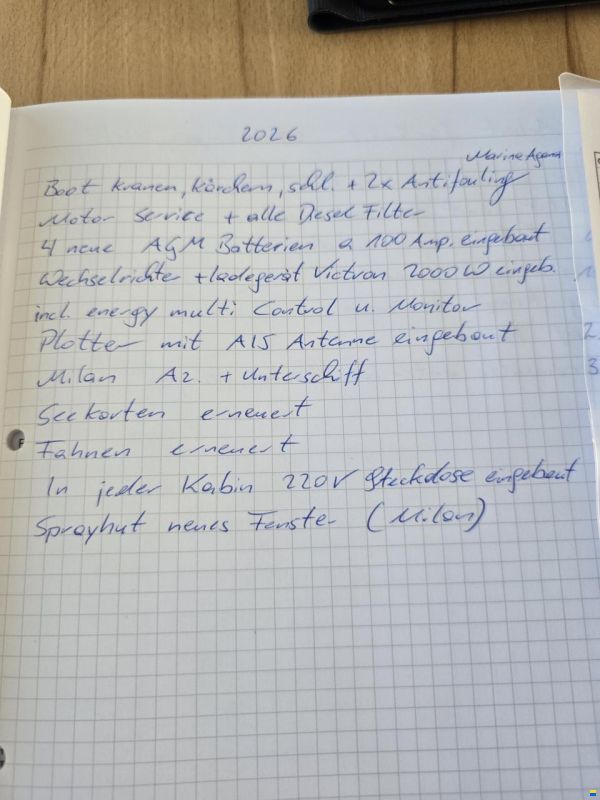 2026
Marine Agana
Boot kranen, kärchern, schl. + 2x Antifouling
Motor Service + alle Diesel Filter
4 neue AGM Batterien a 100 Amp. eingebaut
Wechselrichter + Ladegerät Victron 2000 W eingeb.
incl. energy multi Control u. Monitor
Plotter mit AIS Antenne eingebaut
Milan Az. + Unterschiff
Seekarten erneuert
Fahnen erneuert
In jeder Kabin 220V Steckdose eingebaut
Sprayhut neues Fenster (Milan)